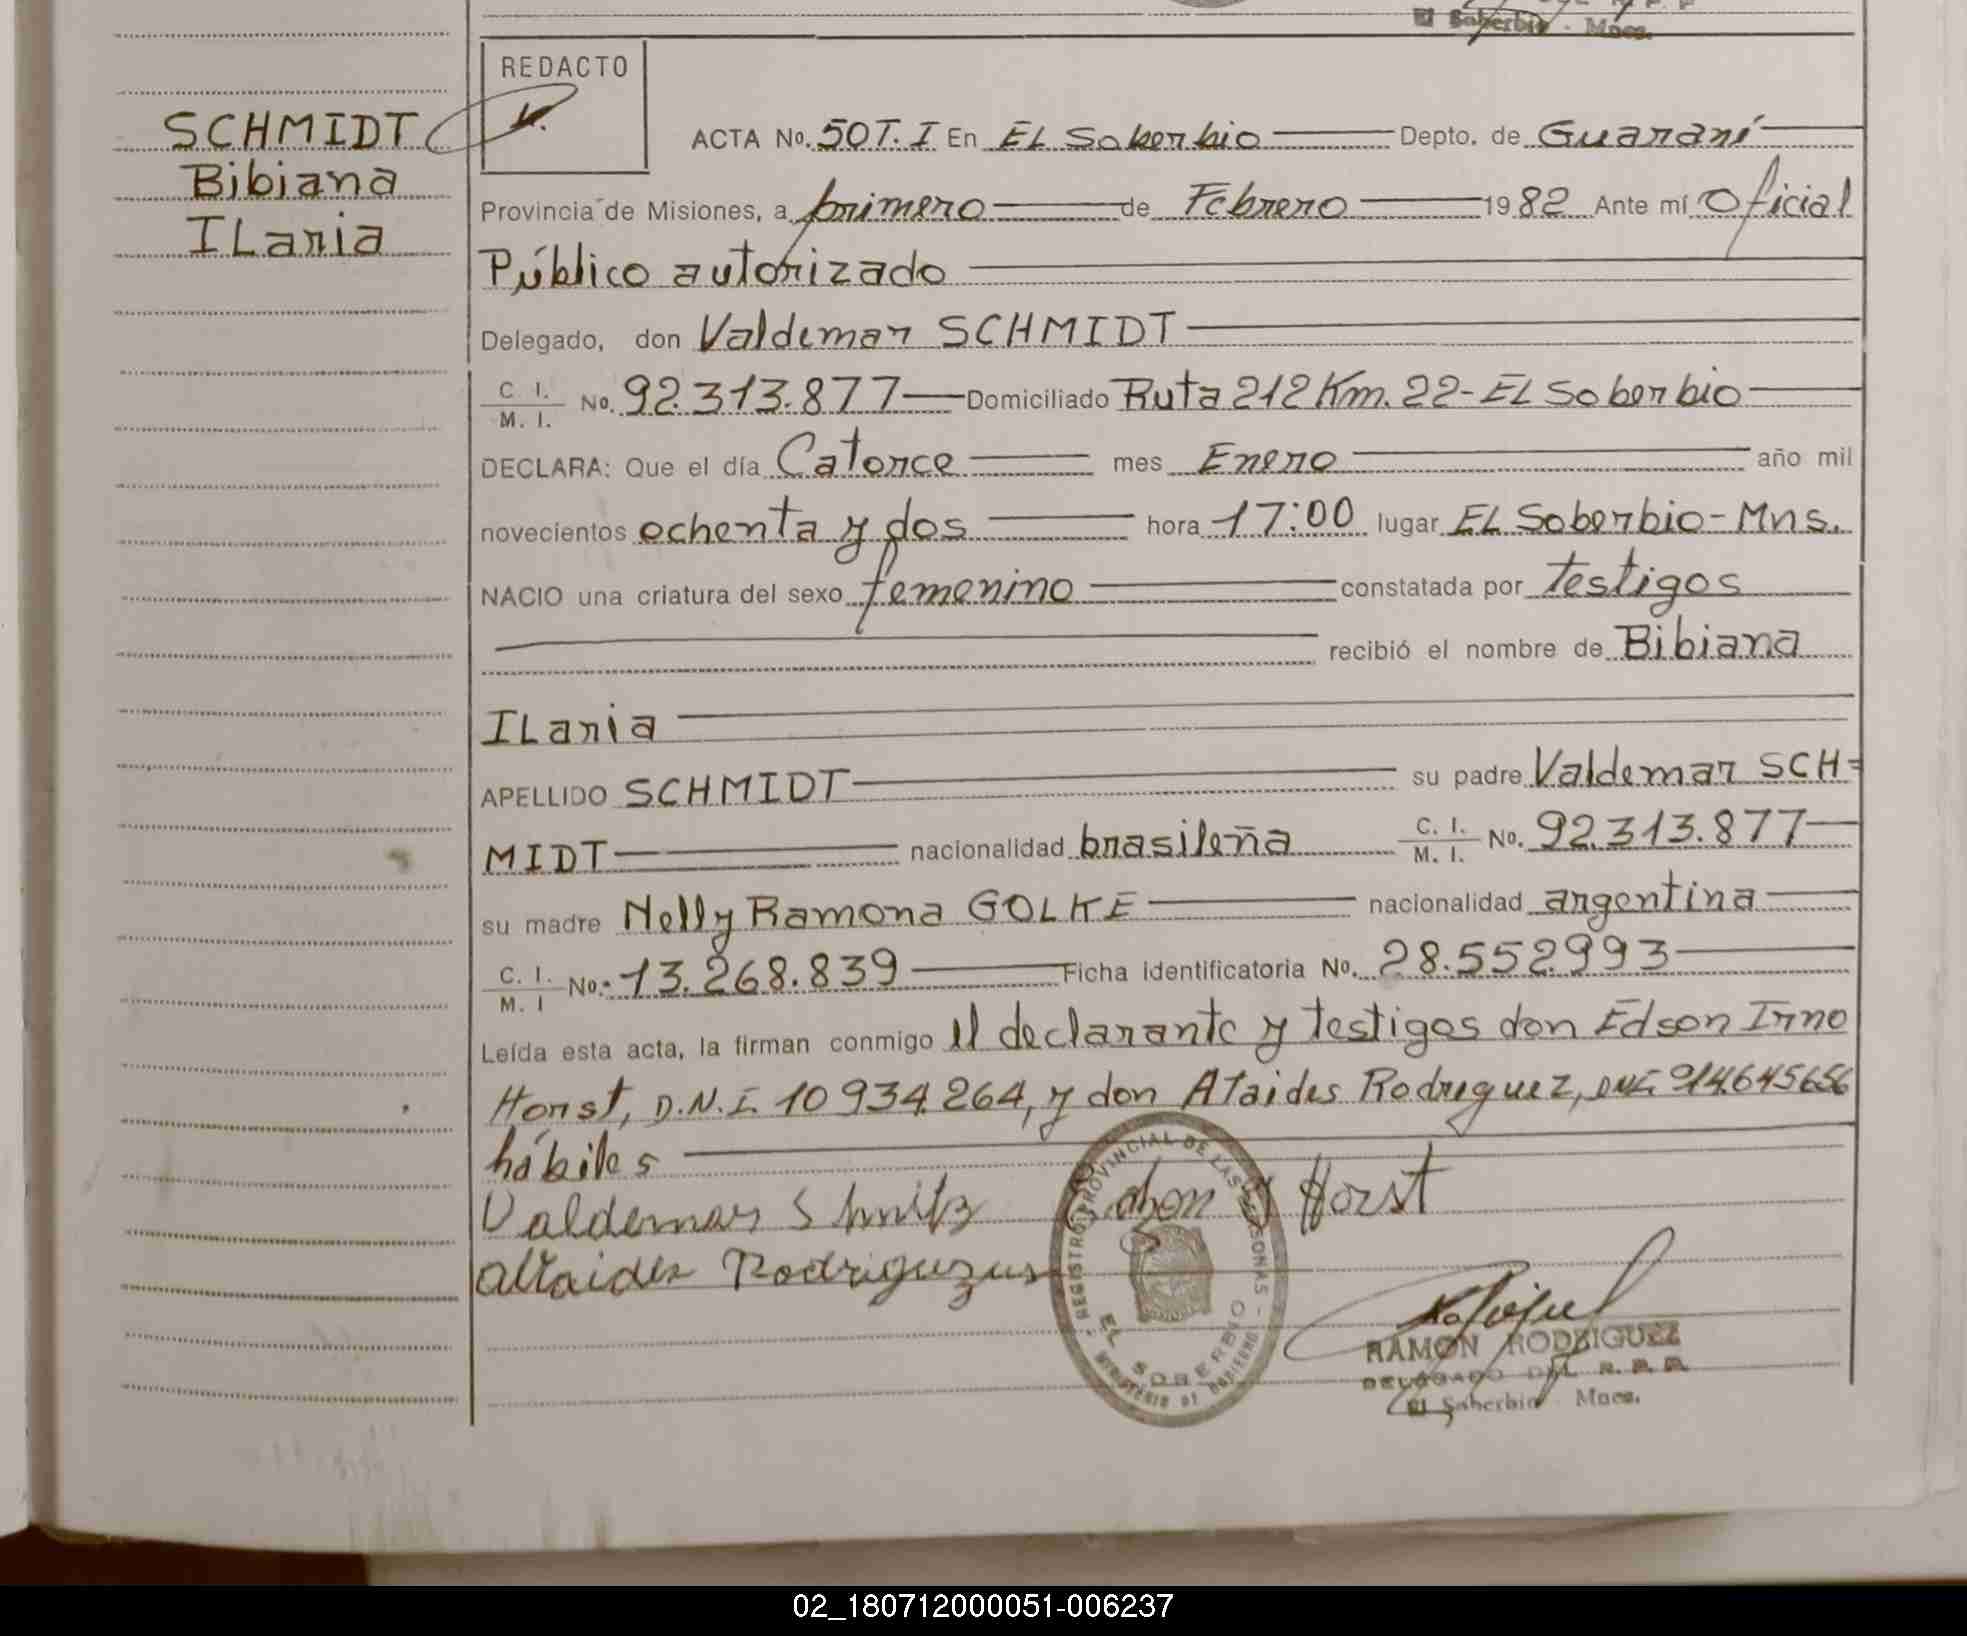 El Soberbio - Mnes.
REDACTO
SCHMIDT
Bibiana
ILaria
ACTA No. 50T.I En EL Soberbio Depto. de Guaraní
Provincia de Misiones, a primero de Febrero 1982 Ante mí Oficial
Público autorizado
Delegado, don Valdemar SCHMIDT
C. I. / M. I. No. 92.313.877 Domiciliado Ruta 212 Km. 22-EL Soberbio
DECLARA: Que el día Catorce mes Enero año mil
novecientos ochenta y dos hora 17:00 lugar EL Soberbio-Mns.
NACIO una criatura del sexo femenino constatada por testigos
recibió el nombre de Bibiana
ILaria
APELLIDO SCHMIDT su padre Valdemar SCH=
MIDT nacionalidad brasileña C. I. / M. I. No. 92.313.877
su madre Nelly Ramona GOLKE nacionalidad argentina
C. I. / M. I No. 13.268.839 Ficha identificatoria No. 28.552.993
Leída esta acta, la firman conmigo el declarante y testigos don Edson Irno
Horst, D.N.I. 10 934.264, y don Ataides Rodriguez, DNI 914.645656
hábiles
Valdemar Shmitz Edson J Horst
Altaides Rodriguzus
REGISTRO PROVINCIAL DE LAS PERSONAS
EL SOBERBIO
MINISTERIO DE GOBIERNO
RAMON RODRIGUEZ
DELEGADO DEL R. P. P.
El Soberbio - Mnes.
02_180712000051-006237